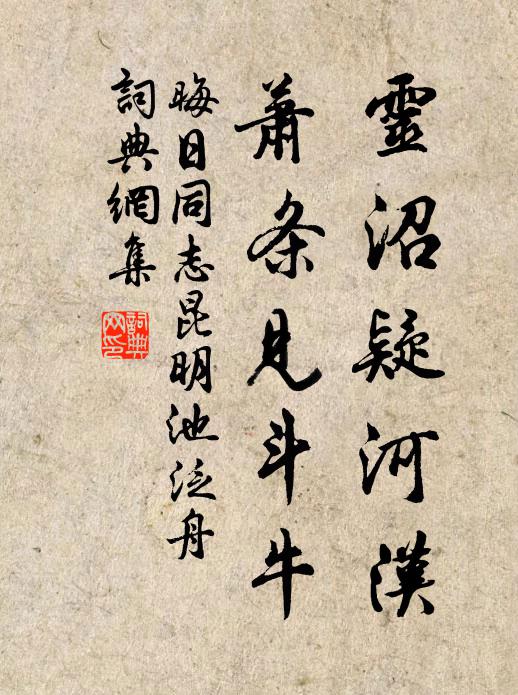 靈沼疑河漢
蕭条見斗牛
晦日同志昆明池泛舟
詞典網集
詞典网印